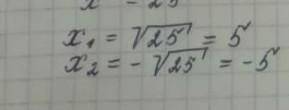 x₁ = √25 = 5
x₂ = - √25 = -5